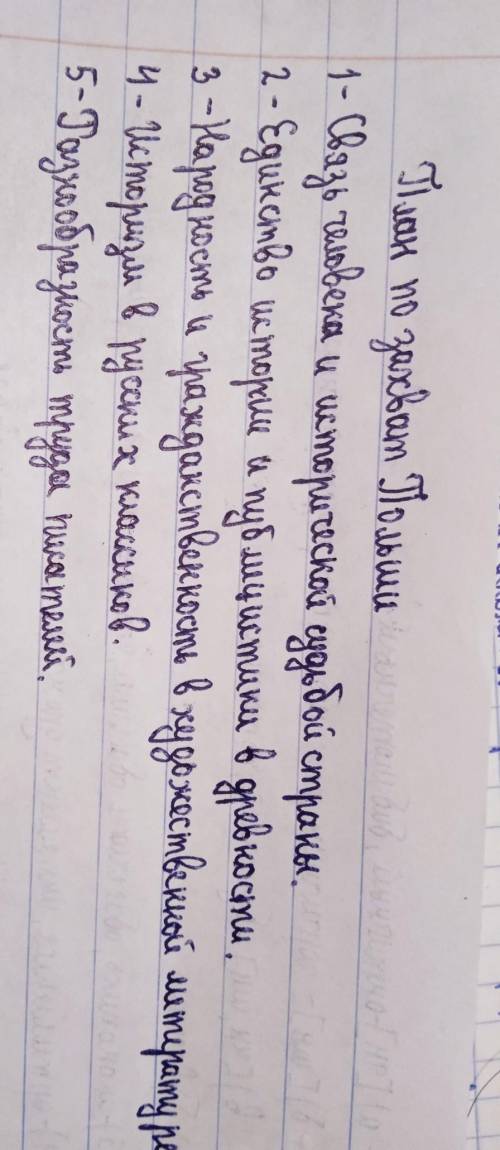 План по захват Польши
1- Связь человека и исторической судьбой страны.
2- Единство истории и публицистики в древности.
3 - Народность и гражданственность в художественной литературе
4 - Историзм в русских классиков.
5- Разнообразность труда писателей.